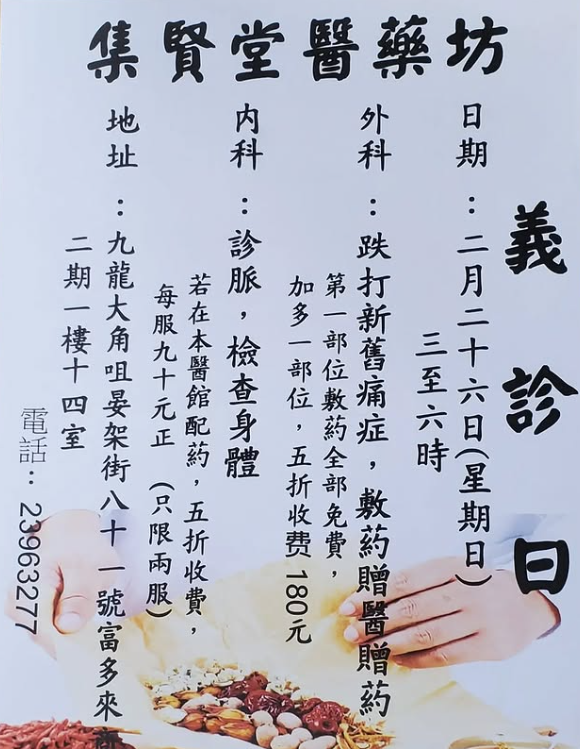 集賢堂醫藥坊
義診日
日期：二月二十六日(星期日)
三至六時
外科：跌打新舊痛症，敷葯贈醫贈葯
第一部位敷葯全部免費，
加多一部位，五折收费180元
內科：診脈，檢查身體
若在本醫館配葯，五折收費，
每服九十元正（只限兩服）
地址：九龍大角咀晏架街八十一號富多來
二期一樓十四室
電話：23963277